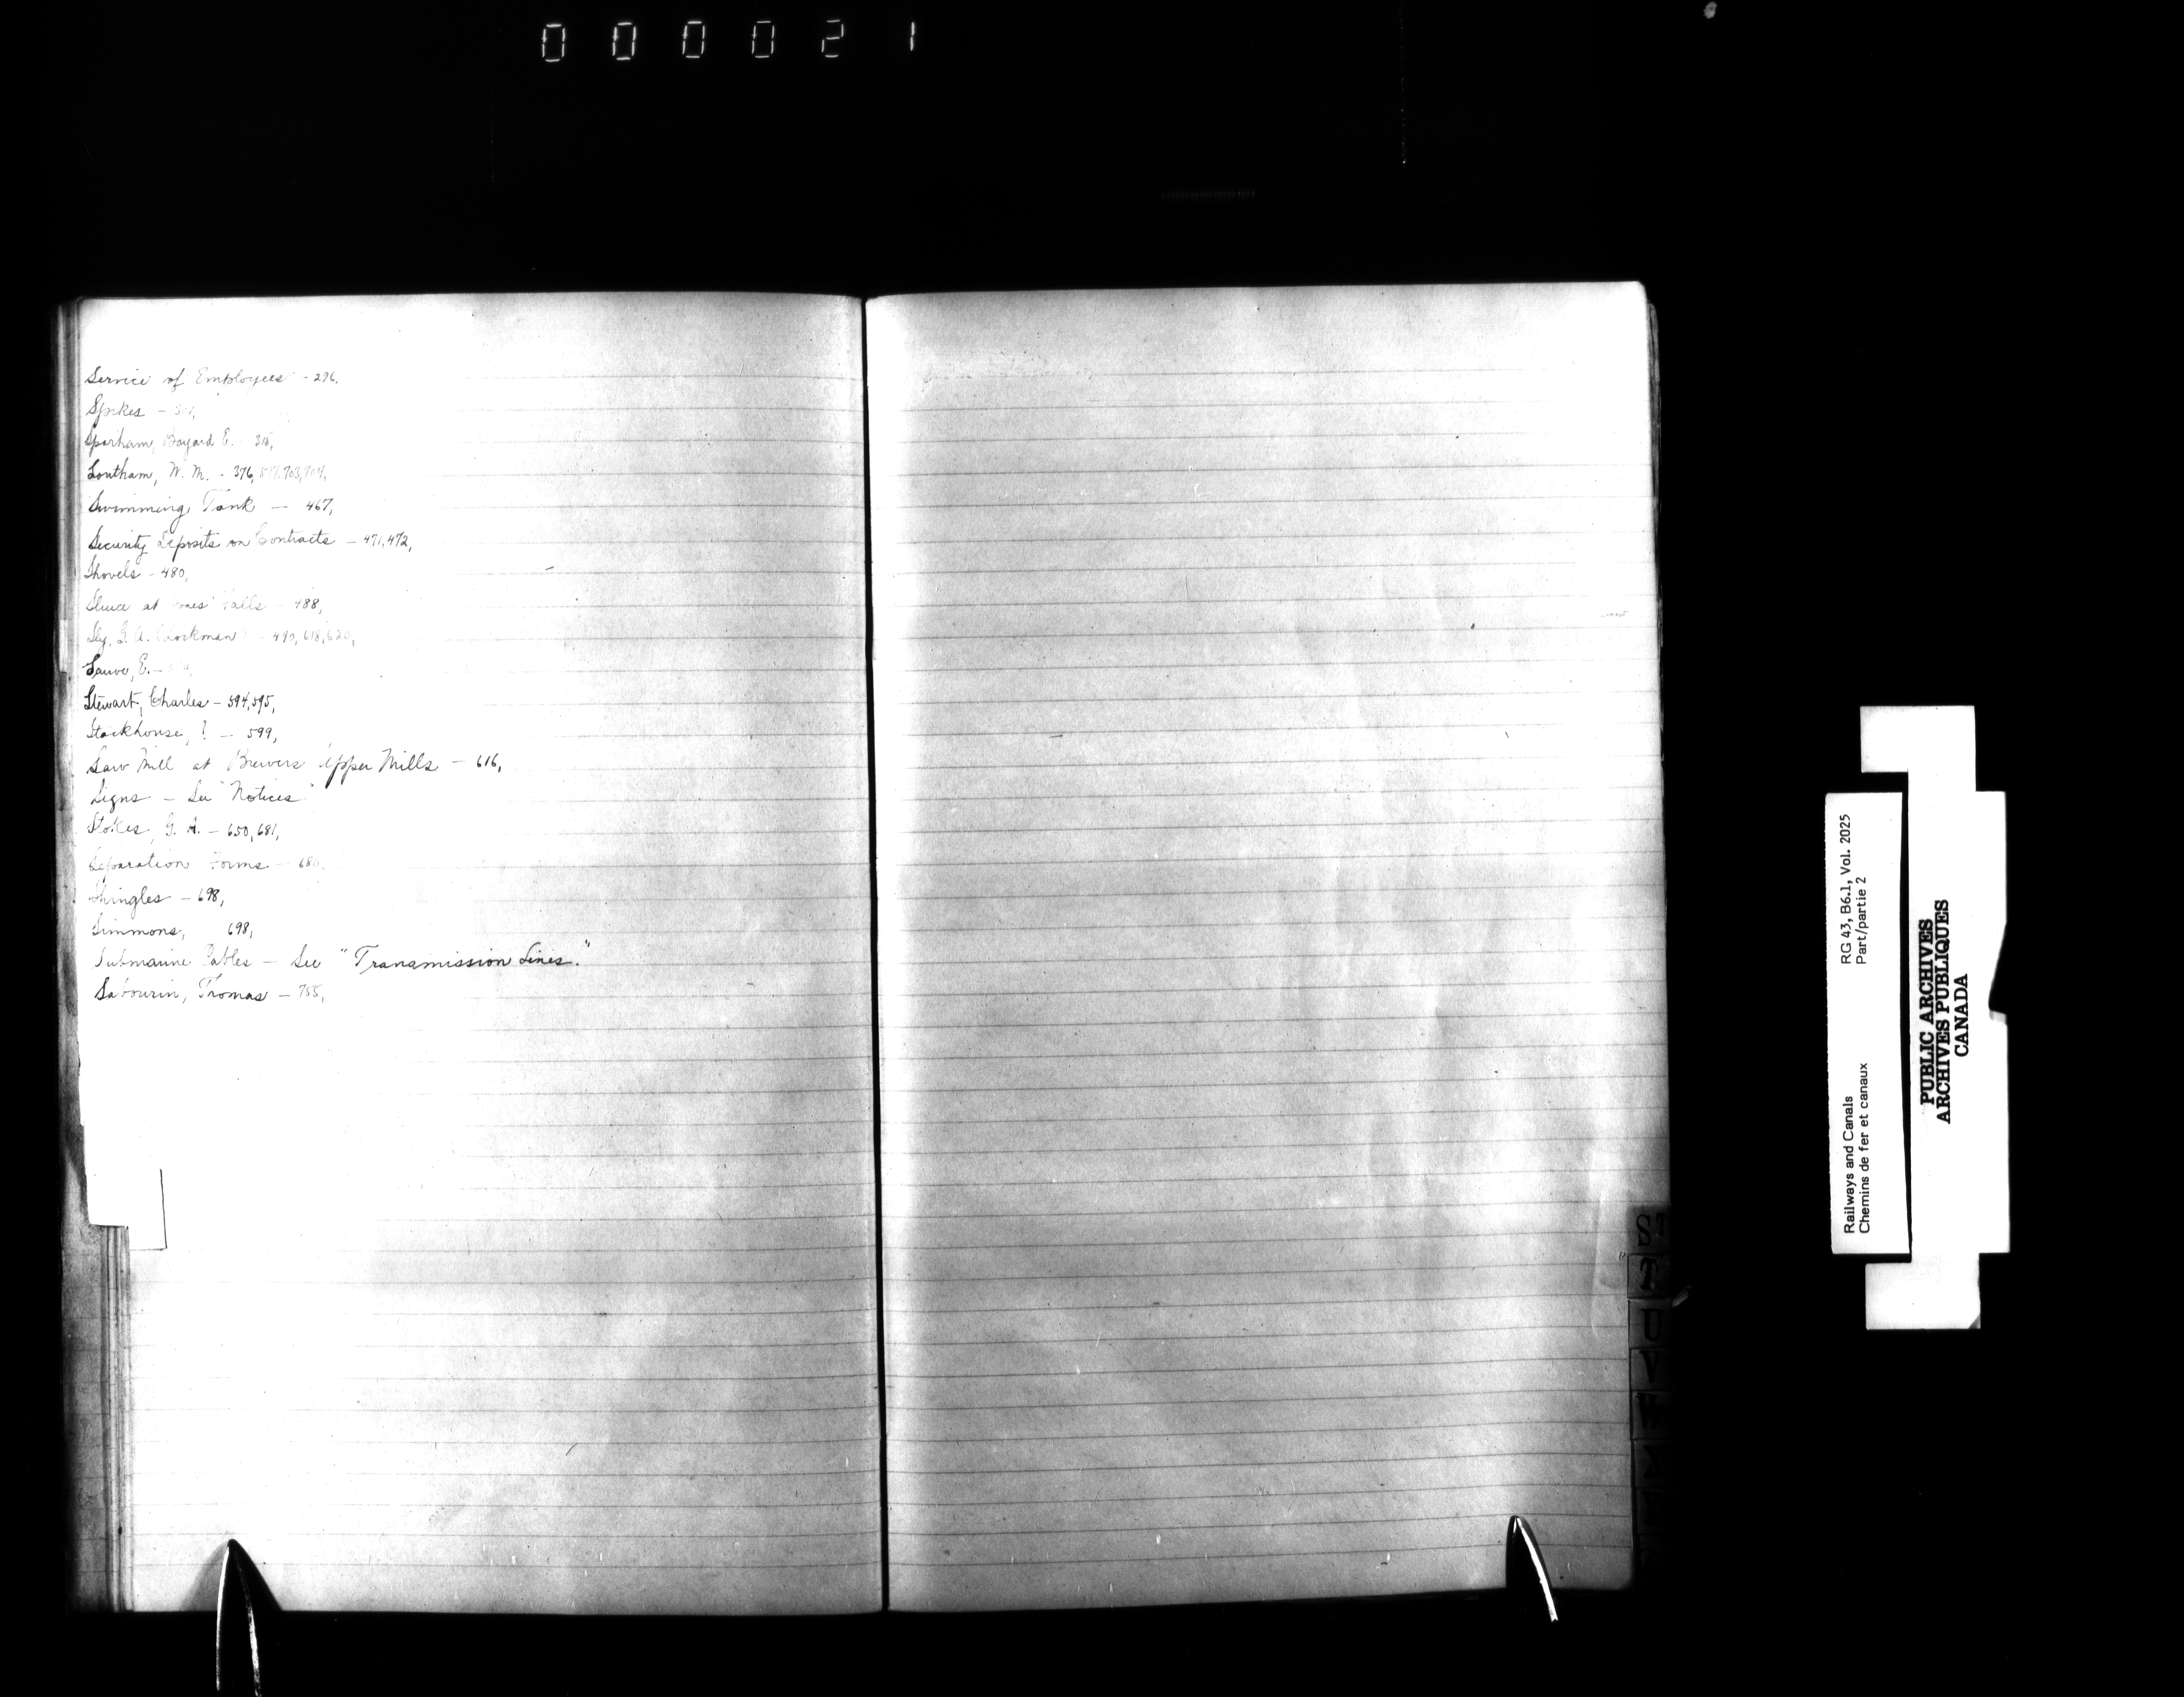 000021
Service of Employees - 296,
Spikes -
Sparham, Bayard E. - 315,
Southam, W. M. - 376, 703, 704,
Swimming Tank - 467,
Security Deposits on Contracts - 471, 472,
Shovels - 480,
Sluice at Jones' Falls - 488,
Sly, G. A. (Lockman) - 490, 618, 620,
Sauve, E. -
Stewart, Charles - 594, 595,
Stackhouse, ? - 599,
Saw Mill at Brewers Upper Mills - 616,
Signs - See "Notices"
Stokes, G. A. - 650, 681,
Separation Forms -
Shingles - 698,
Simmons, 698,
Submarine Cables - See "Transmission Lines."
Sabourin, Thomas - 755,
S
T
U
V
W
Railways and Canals RG 43, B6.1, Vol. 2025
Chemins de fer et canaux Part/partie 2
PUBLIC ARCHIVES
ARCHIVES PUBLIQUES
CANADA